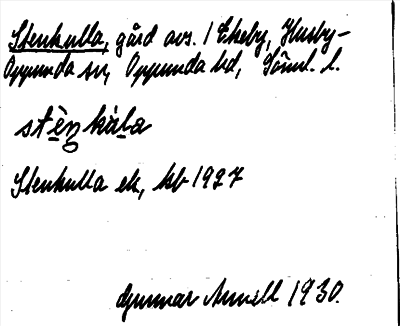 Stenkulla, gård avs. / Ekeby, Husby-
Oppunda sn, Oppunda hd, Söml. l.
stèŋkàla
Stenkulla ek, kb 1927
Gunnar Annell 1930.